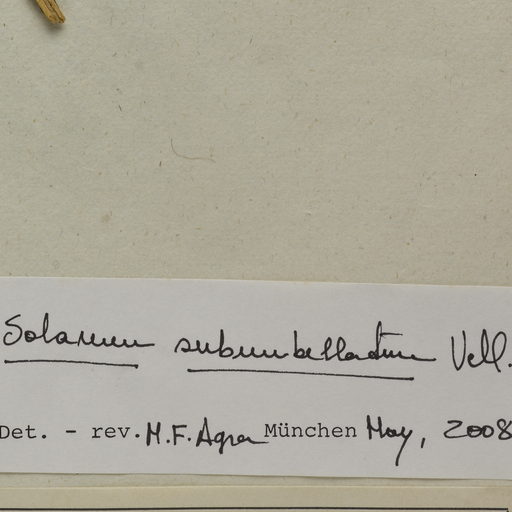 Solanum subumbellatum Vell.
Det. - rev. M.F. Agra München May, 2008